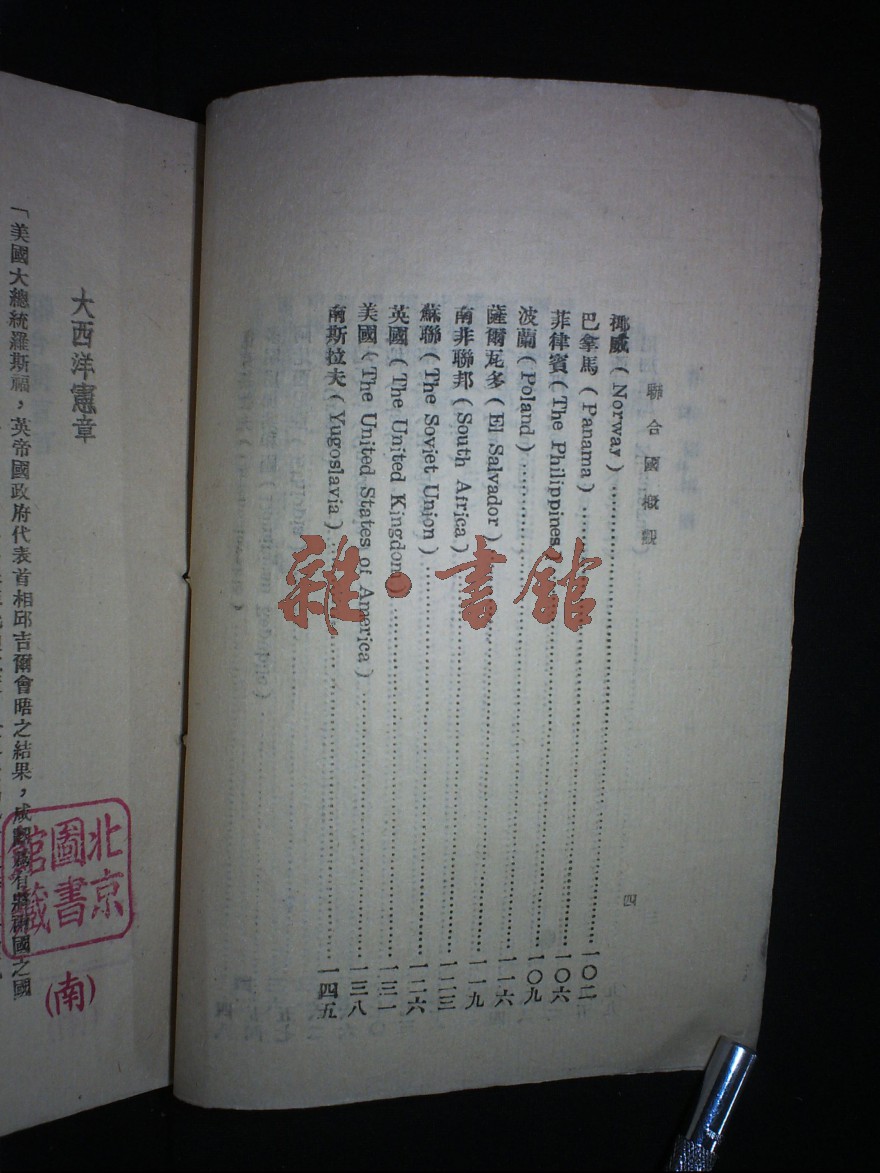 聯合國概觀
四
挪威(Norway)……一〇二
巴拿馬(Panama)……一〇六
菲律賓(The Philippines)……一〇九
波蘭(Poland)……一一六
薩爾瓦多(El Salvador)……一一九
南非聯邦(South Africa)……一二三
蘇聯(The Soviet Union)……一二六
英國(The United Kingdom)……一三一
美國(The United States of America)……一三八
南斯拉夫(Yugoslavia)……一四五
雜·書館
大西洋憲章
「美國大總統羅斯福,英帝國政府代表首相邱吉爾會晤之結果,咸
國之國
北京圖書館藏
(南)